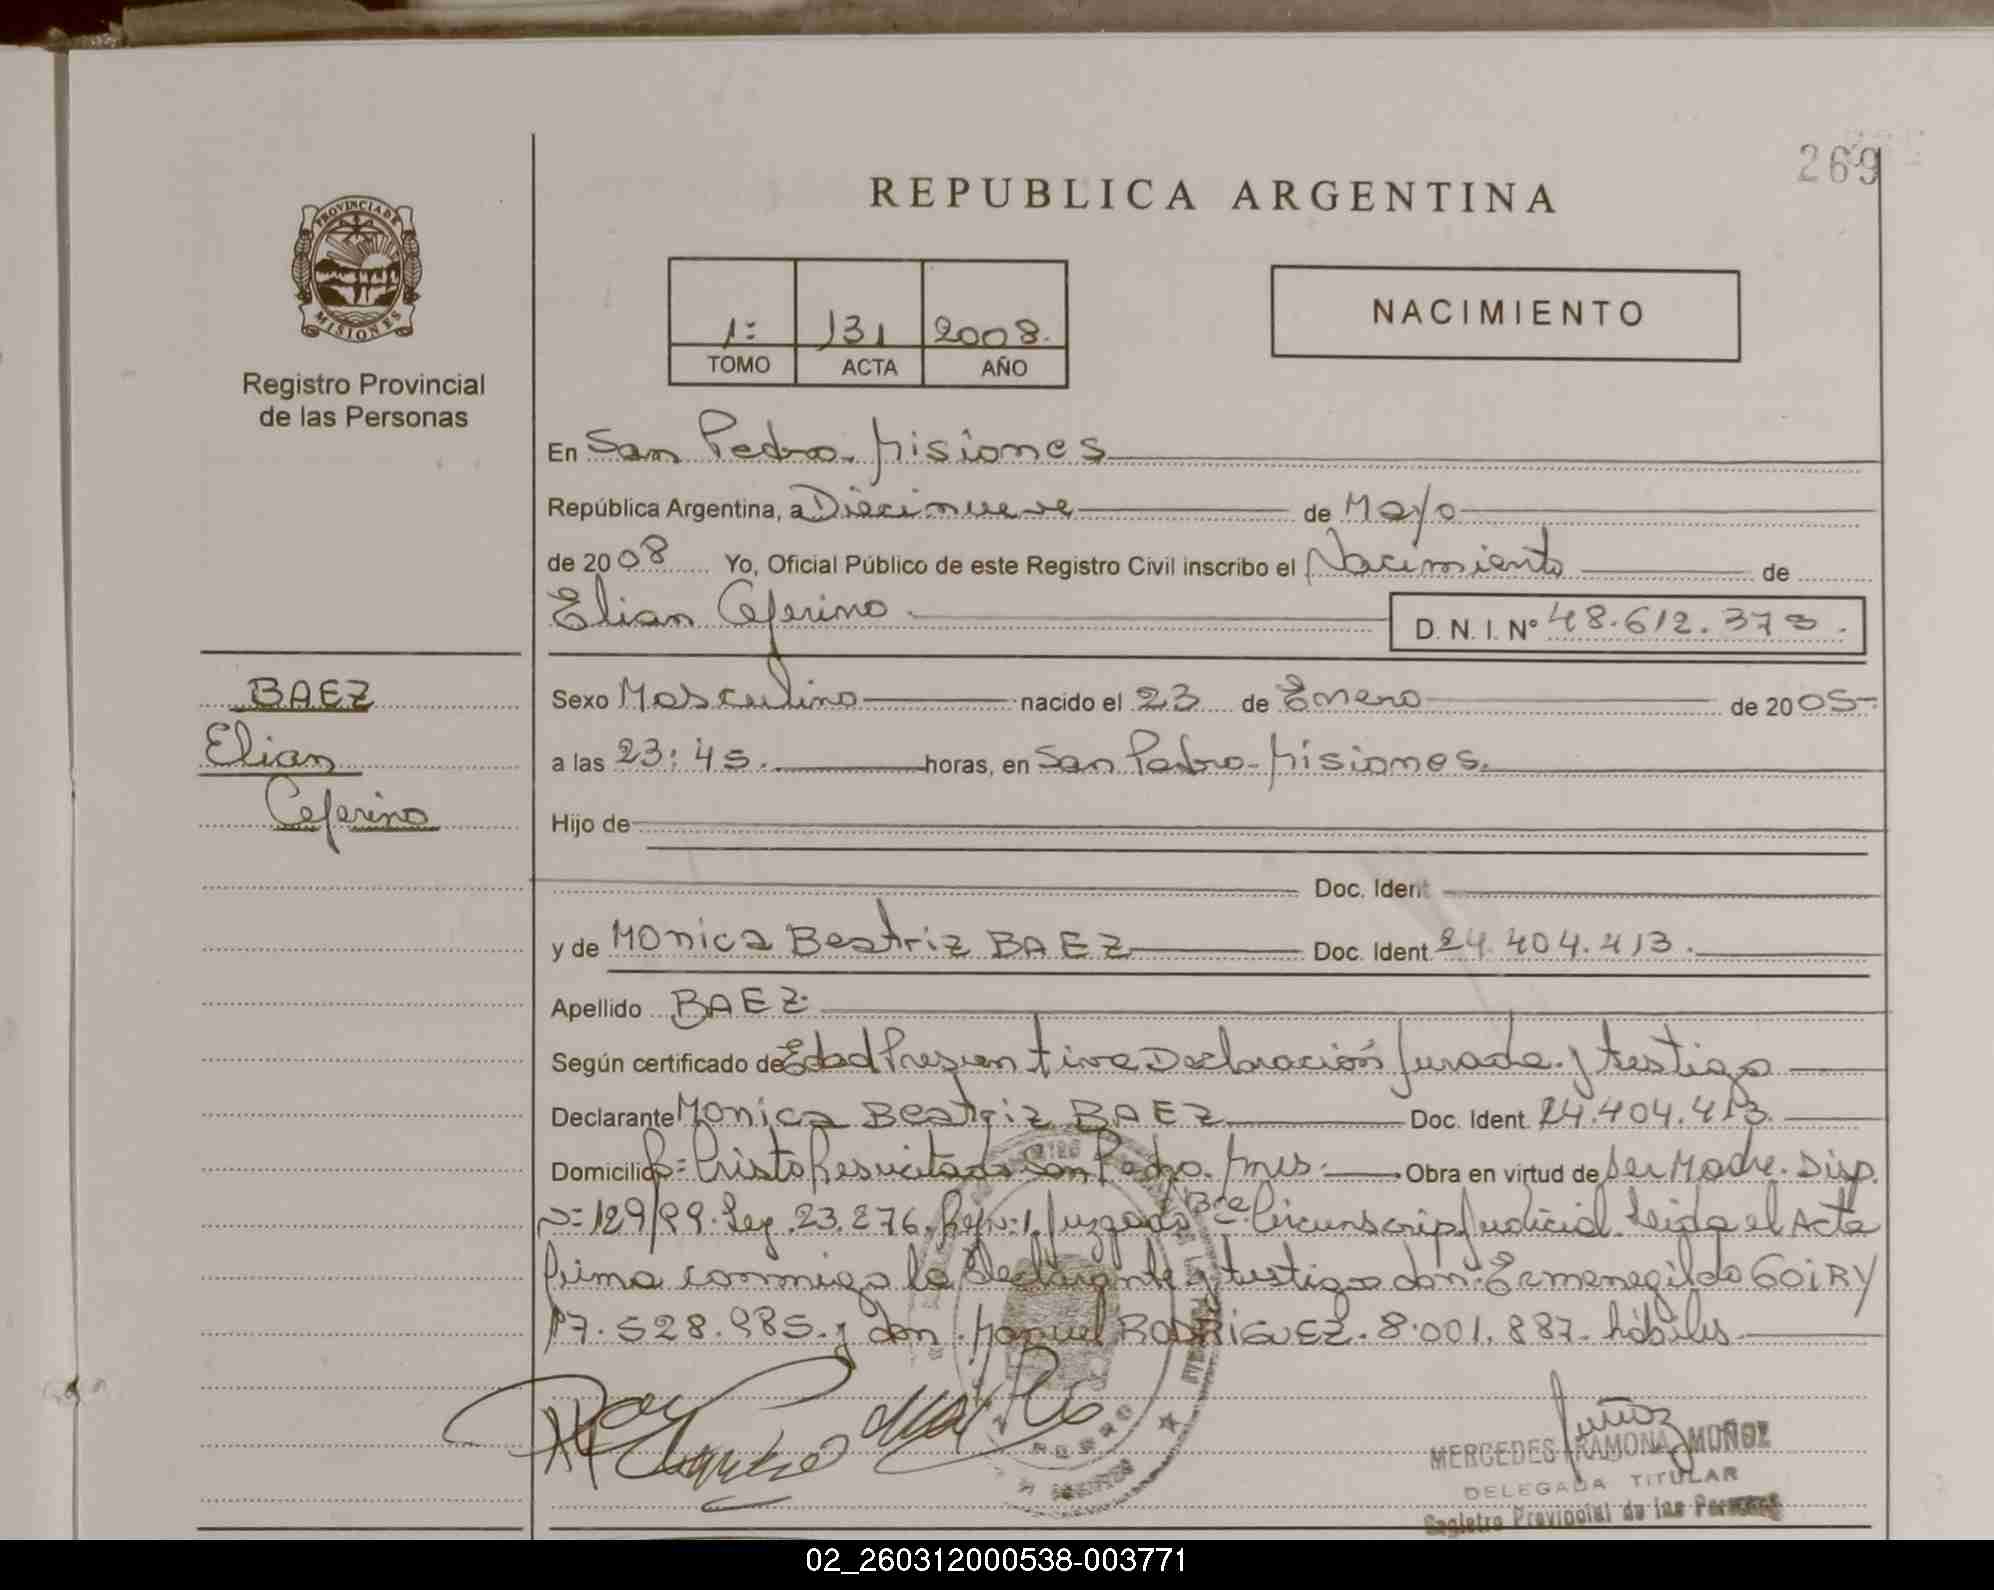 269
REPUBLICA ARGENTINA
PROVINCIA DE
MISIONES
Registro Provincial
de las Personas
1º 131 2008.
TOMO ACTA AÑO
NACIMIENTO
En San Pedro. Misiones
República Argentina, a Diecinueve de Mayo
de 2008 Yo, Oficial Público de este Registro Civil inscribo el Nacimiento de
Elian Ceferino D. N. I. Nº 48.612.373.
BAEZ
Elian
Ceferino
Sexo Masculino nacido el 23 de Enero de 2005
a las 23:45. horas, en San Pedro. Misiones.
Hijo de
Doc. Ident
y de MOnica Beatriz BAEZ Doc. Ident 24.404.413.
Apellido BAEZ
Según certificado de Edad Presuntiva Declaración Jurada y testigo
Declarante MOnica Beatriz BAEZ Doc. Ident 24.404.413.
Domicilio Bº Cristo Resucitado San Pedro. Mnes. Obra en virtud de ser Madre. Disp.
Nº 129/99. Ley. 23.276. Juzgado 3ra Circunscrip Judicial. Leida el Acta
firma conmigo la Declarante y testigos don: Ermenegildo GOiRY
17.528.985. y don Manuel RODRIGUEZ. 8.001.887. hábiles
Muñoz
MERCEDES RAMONA MUÑOZ
DELEGADA TITULAR
Registro Provincial de las Personas
02_260312000538-003771